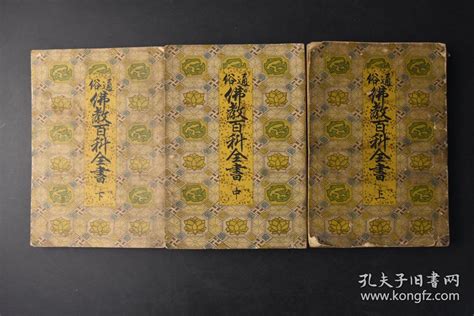 通俗
佛教百科全書
下
通俗
佛教百科全書
中
通俗
佛教百科全書
上
孔夫子旧书网
www.kongfz.com